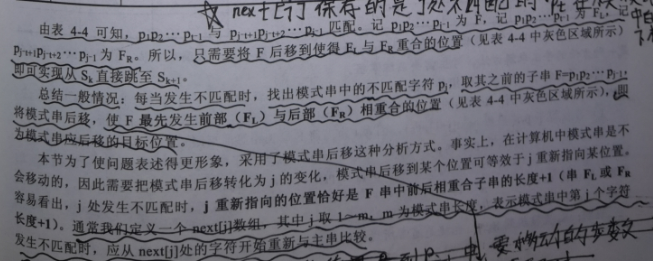 next[j]保存的是j处不匹配时
由表 4-4 可知,p₁p₂⋯pₜ₋₁ 与 pⱼ₋ₜ₊₁pⱼ₋ₜ₊₂⋯pⱼ₋₁ 匹配。记 p₁p₂⋯pⱼ₋₁ 为 F,记 p₁p₂⋯pₜ₋₁ 为 F_L,记
pⱼ₋ₜ₊₁pⱼ₋ₜ₊₂⋯pⱼ₋₁ 为 F_R。所以,只需要将 F 后移到使得 F_L 与 F_R 重合的位置(见表 4-4 中灰色区域所示)
即可实现从 S_k 直接跳至 S_k+1。
总结一般情况:每当发生不匹配时,找出模式串中的不匹配字符 pⱼ,取其之前的子串 F=p₁p₂⋯pⱼ₋₁,
将模式串后移,使 F 最先发生前部(F_L)与后部(F_R)相重合的位置(见表 4-4 中灰色区域所示),即
为模式串应后移的目标位置。
本节为了使问题表述得更形象,采用了模式串后移这种分析方式。事实上,在计算机中模式串是不
会移动的,因此需要把模式串后移转化为 j 的变化,模式串后移到某个位置可等效于 j 重新指向某位置。
容易看出,j 处发生不匹配时,j 重新指向的位置恰好是 F 串中前后相重合子串的长度+1(串 F_L 或 F_R
长度+1)。通常我们定义一个 next[j]数组,其中 j 取 1~m,m 为模式串长度,表示模式串中第 j 个字符
发生不匹配时,应从 next[j]处的字符开始重新与主串比较。